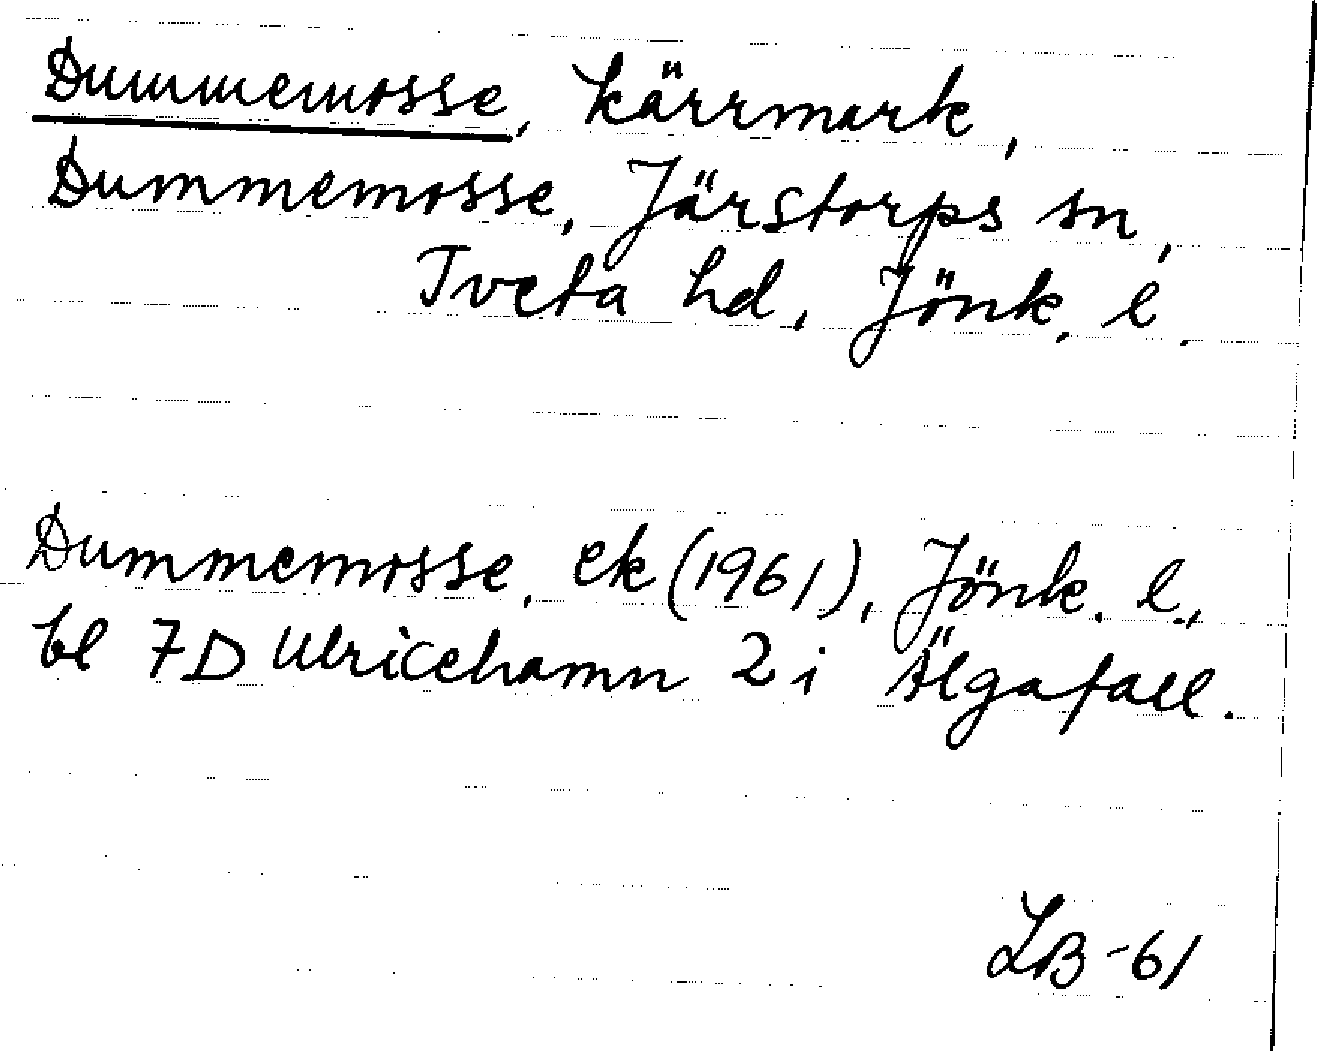 Dummemosse, kärrmark,
Dummemosse, Järstorps sn,
Tveta hd, Jönk. l.
Dummemosse, ek (1961), Jönk. l.,
bl 7D Ulricehamn 2 i Älgafall.
LB -61